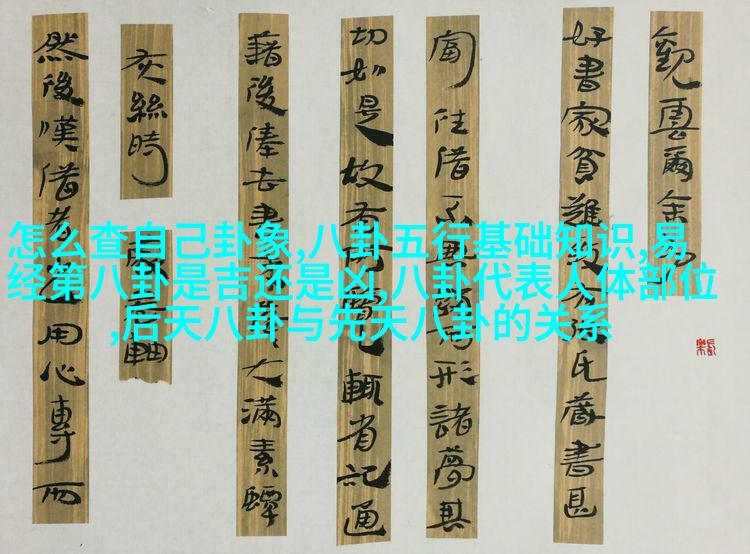 觀雲爾余
好書家貧難氏藏書甚
富往借不形諸夢其
切如是故有輒省記通
藉後俸去書大滿素蟫
灰絲時
軸
然後嘆借者用心專而
怎么查自己卦象,八卦五行基础知识,易
经第八卦是吉还是凶,八卦代表人体部位
,后天八卦与先天八卦的关系